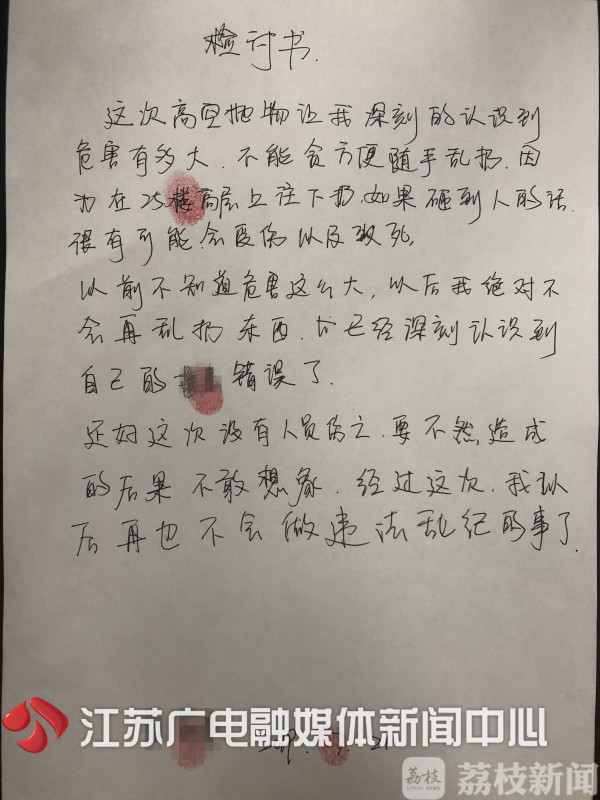 检讨书.
这次高空抛物让我深刻的认识到
危害有多大.不能贪方便随手乱扔.因
为在25楼高层上往下扔.如果砸到人的话.
很有可能会受伤以及致死.
以前不知道危害这么大,以后我绝对不
会再乱扔东西.也已经深刻认识到
自己的 错误了.
还好这次没有人员伤亡.要不然造成
的后果不敢想象.经过这次.我以
后再也不会做违法乱纪的事了.
江苏广电融媒体新闻中心
荔枝
LITCHI NEWS
荔枝新闻